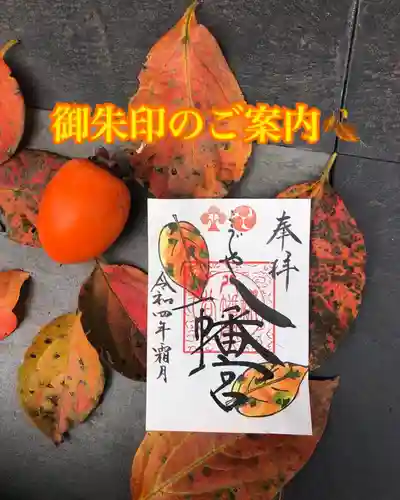 御朱印のご案内
奉拝
八幡宮
令和四年霜月